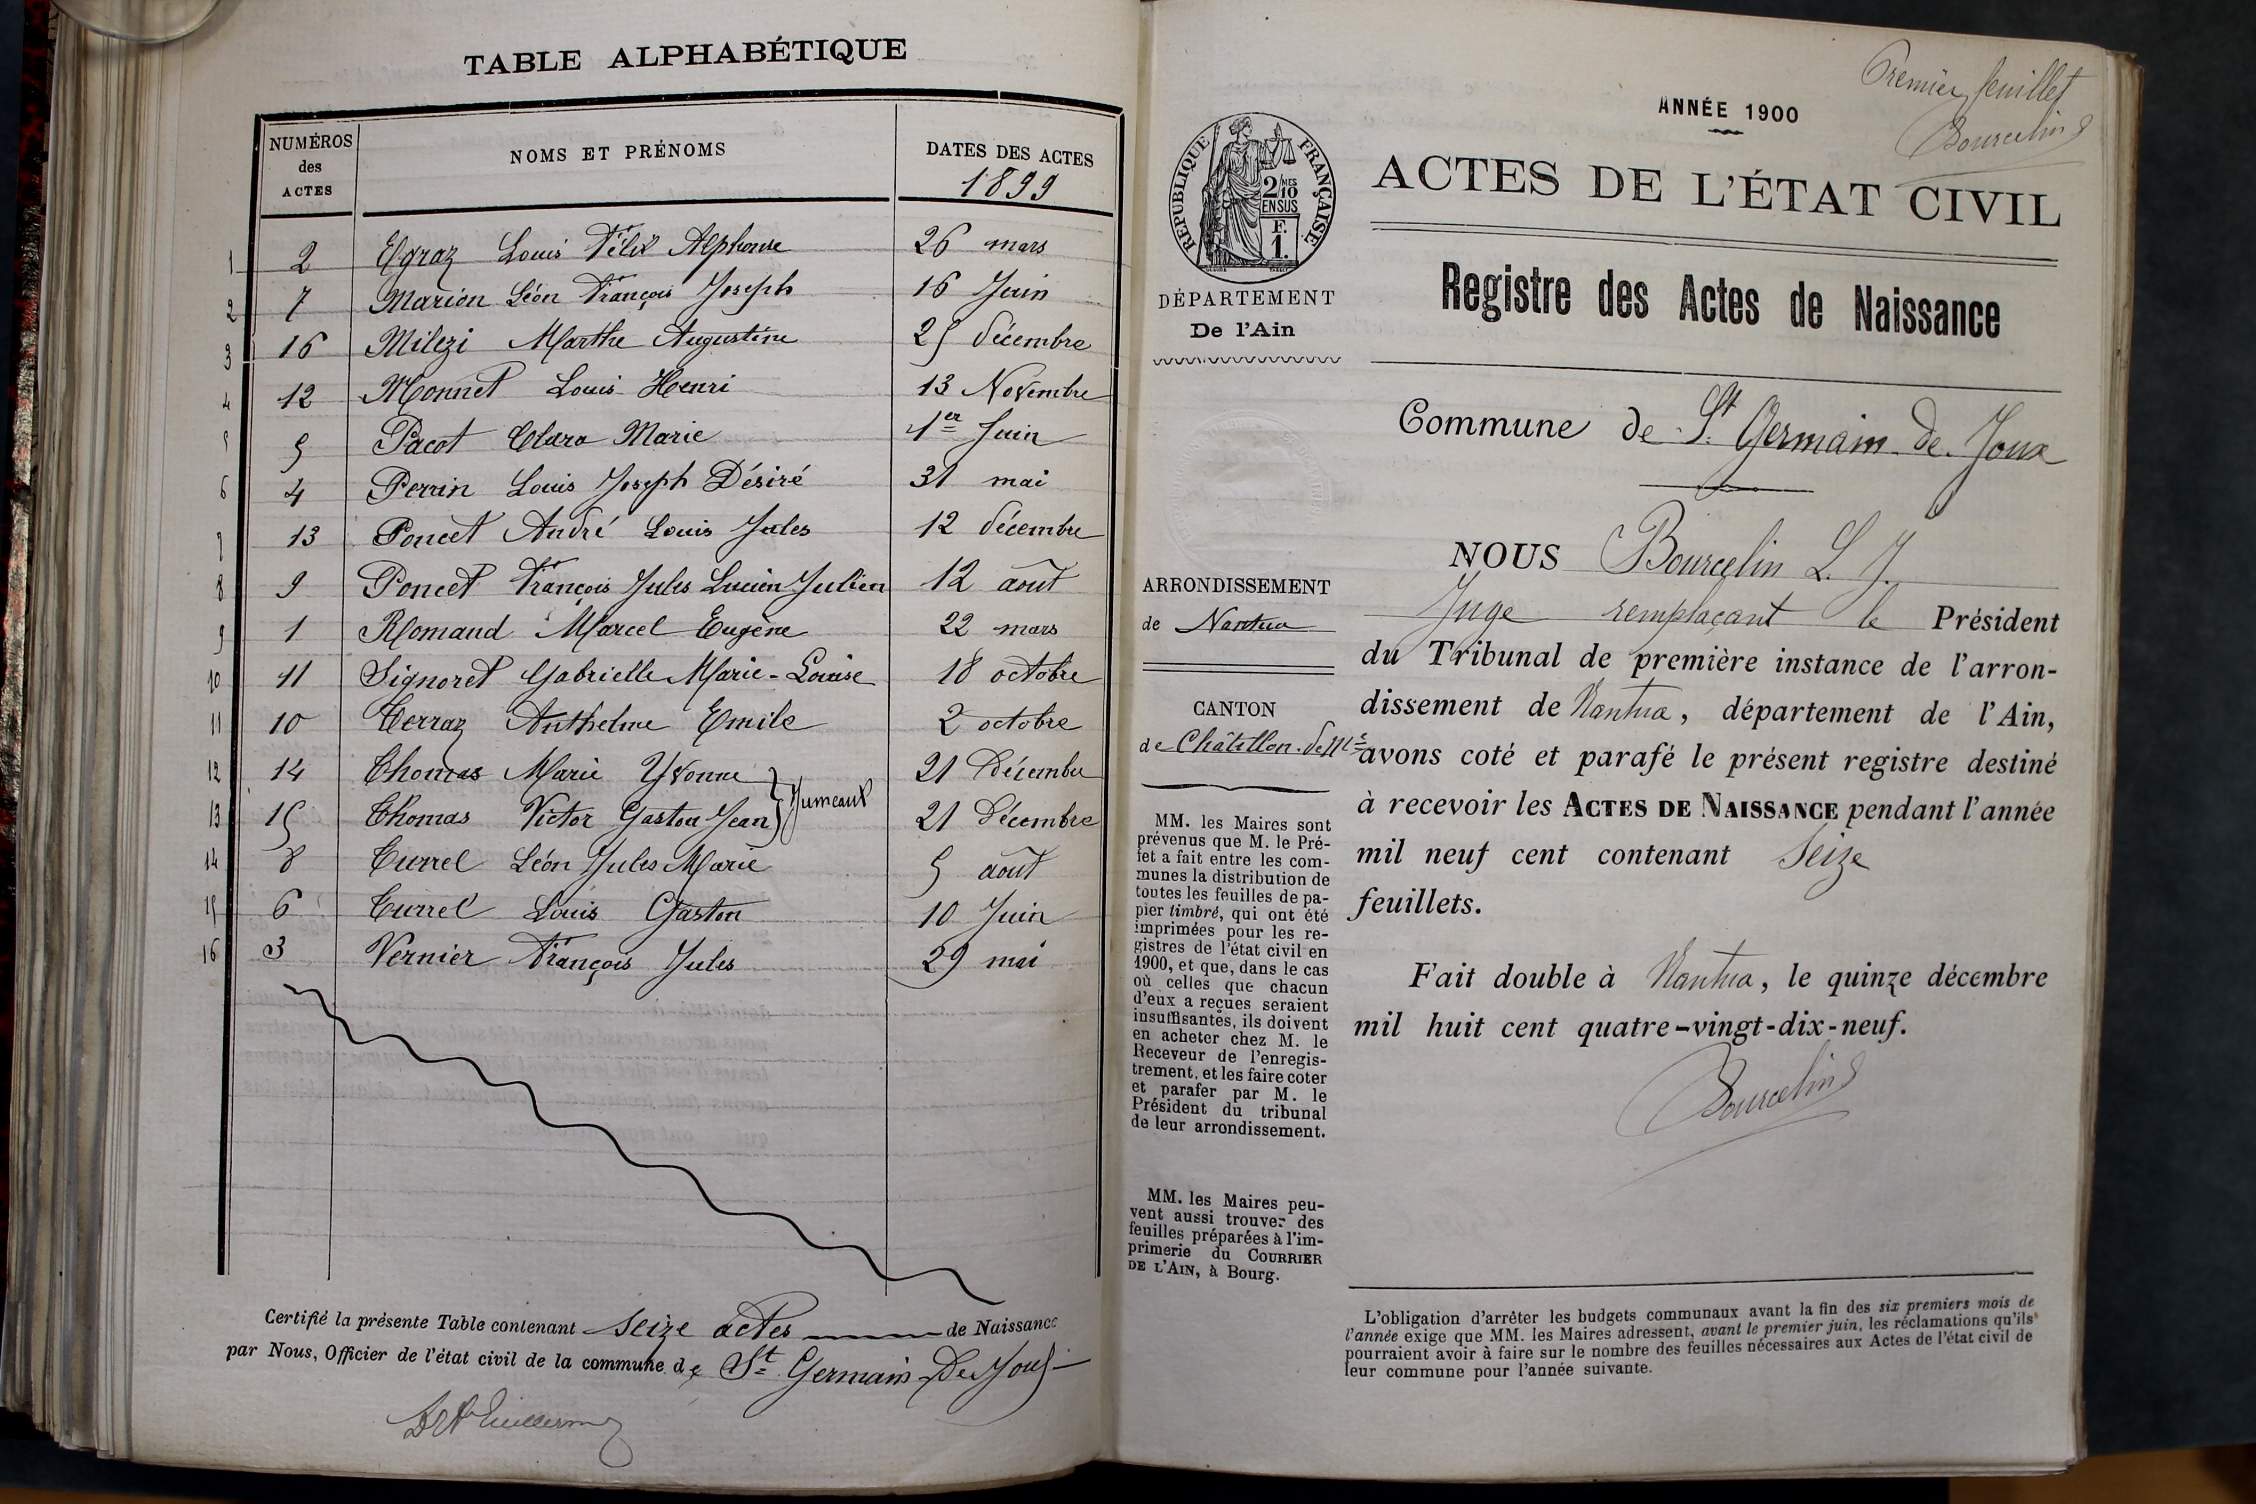 TABLE ALPHABÉTIQUE
NUMÉROS des ACTES NOMS ET PRÉNOMS DATES DES ACTES 1899
1 2 Egraz Louis Félix Alphonse 26 mars
2 7 Marion Léon François Joseph 16 Juin
3 16 Milezi Marthe Augustine 25 décembre
4 12 Monnet Louis Henri 13 Novembre
5 5 Pacot Clara Marie 1er Juin
6 4 Perrin Louis Joseph Désiré 31 mai
7 13 Poncet André Louis Jules 12 décembre
8 9 Poncet François Jules Lucien Julien 12 août
9 1 Romand Marcel Eugène 22 mars
10 11 Signoret Gabrielle Marie-Louise 18 octobre
11 10 Terraz Anthelme Emile 2 octobre
12 14 Thomas Marie Yvonne 21 Décembre
Jumeaux
13 15 Thomas Victor Gaston Jean 21 Décembre
14 8 Turrel Léon Jules Marie 5 août
15 6 Turrel Louis Gaston 10 Juin
16 3 Vernier François Jules 29 mai
Certifié la présente Table contenant seize actes de Naissance
par Nous, Officier de l'état civil de la commune de St Germain De Joux
Premier feuillet
Bourcelin
ANNÉE 1900
RÉPUBLIQUE FRANÇAISE
2/MES 10
EN SUS
F. 1.
ACTES DE L'ÉTAT CIVIL
DÉPARTEMENT
De l'Ain
Registre des Actes de Naissance
Commune de St. Germain de Joux
ARRONDISSEMENT
de Nantua
CANTON
de Châtillon-de-Mle
MM. les Maires sont
prévenus que M. le Pré-
fet a fait entre les com-
munes la distribution de
toutes les feuilles de pa-
pier timbré, qui ont été
imprimées pour les re-
gistres de l'état civil en
1900, et que, dans le cas
où celles que chacun
d'eux a reçues seraient
insuffisantes, ils doivent
en acheter chez M. le
Receveur de l'enregis-
trement, et les faire coter
et parafer par M. le
Président du tribunal
de leur arrondissement.
MM. les Maires peu-
vent aussi trouver des
feuilles préparées à l'im-
primerie du COURRIER
DE L'AIN, à Bourg.
NOUS Bourcelin L. J.
Juge remplaçant le Président
du Tribunal de première instance de l'arron-
dissement de Nantua, département de l'Ain,
avons coté et parafé le présent registre destiné
à recevoir les ACTES DE NAISSANCE pendant l'année
mil neuf cent contenant Seize
feuillets.
Fait double à Nantua, le quinze décembre
mil huit cent quatre-vingt-dix-neuf.
Bourcelin
L'obligation d'arrêter les budgets communaux avant la fin des six premiers mois de
l'année exige que MM. les Maires adressent, avant le premier juin, les réclamations qu'ils
pourraient avoir à faire sur le nombre des feuilles nécessaires aux Actes de l'état civil de
leur commune pour l'année suivante.